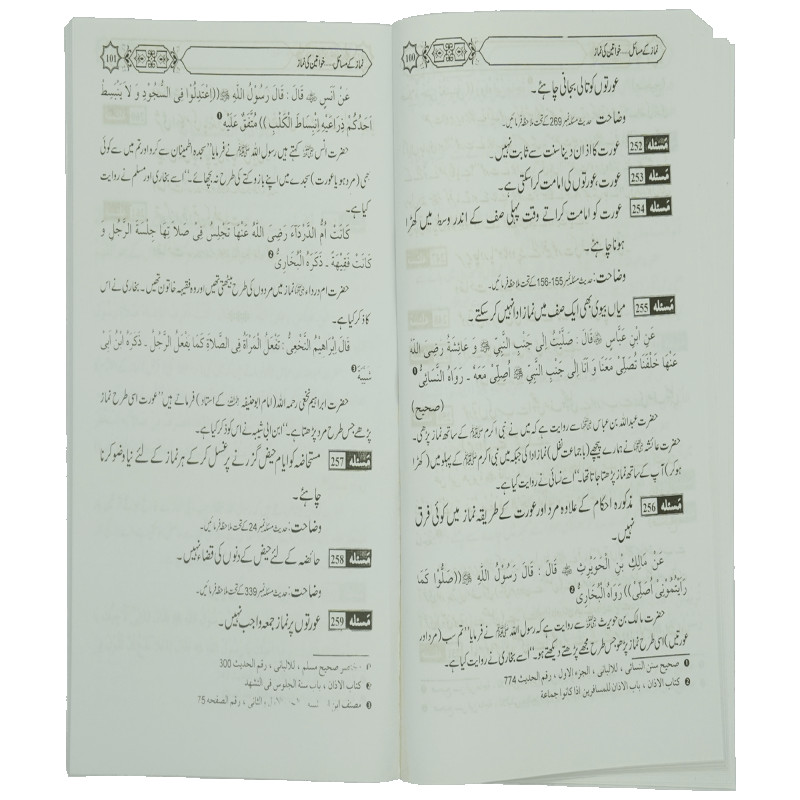 نماز کے مسائل.....خواتین کی نماز
100
عورتوں کو تالی بجانی چاہئے۔
وضاحت: حدیث مسئلہ نمبر 269 کے تحت ملاحظہ فرمائیں۔
مسئلہ 252 عورت کا اذان دینا سنت سے ثابت نہیں۔
مسئلہ 253 عورت، عورتوں کی امامت کرا سکتی ہے۔
مسئلہ 254 عورت کو امامت کراتے وقت پہلی صف کے اندر وسط میں کھڑا
ہونا چاہئے۔
وضاحت: حدیث مسئلہ نمبر 155-156 کے تحت ملاحظہ فرمائیں۔
مسئلہ 255 میاں بیوی بھی ایک صف میں نماز ادا نہیں کر سکتے۔
عَنِ ابْنِ عَبَّاسٍ ؓ قَالَ : صَلَّيْتُ اِلٰى جَنْبِ النَّبِيِّ ﷺ وَ عَائِشَةُ رَضِىَ اللّٰهُ
عَنْهَا خَلْفَنَا تُصَلِّىْ مَعَنَا وَ اَنَا اِلٰى جَنْبِ النَّبِيِّ ﷺ اُصَلِّىْ مَعَهُ ۔ رَوَاهُ النَّسَائِىُّ ❶
(صحیح)
حضرت عبداللہ بن عباس ؓ سے روایت ہے کہ میں نے نبی اکرم ﷺ کے ساتھ نماز پڑھی۔
حضرت عائشہ ؓ نے ہمارے پیچھے (باجماعت نفل) نماز ادا کی جبکہ میں نبی اکرم ﷺ کے پہلو میں (کھڑا
ہو کر) آپ کے ساتھ نماز پڑھتا جاتا تھا۔“ اسے نسائی نے روایت کیا ہے۔
مسئلہ 256 مذکورہ احکام کے علاوہ مرد اور عورت کے طریقہ نماز میں کوئی فرق
نہیں۔
عَنْ مَالِكِ بْنِ الْحُوَيْرِثِ ؓ قَالَ : قَالَ رَسُوْلُ اللّٰهِ ﷺ ((صَلُّوْا كَمَا
رَاَيْتُمُوْنِىْ اُصَلِّىْ)) رَوَاهُ الْبُخَارِىُّ ❷
حضرت مالک بن حویرث ؓ سے روایت ہے کہ رسول اللہ ﷺ نے فرمایا ”تم سب (مرد اور
عورتیں) اسی طرح نماز پڑھو جس طرح مجھے پڑھتے دیکھتے ہو۔“ اسے بخاری نے روایت کیا ہے۔
❶ صحیح سنن النسائی ، للالبانی ، الجزء الاول ، رقم الحدیث 774
❷ کتاب الاذان ، باب الاذان للمسافرین اذا کانوا جماعة
نماز کے مسائل.....خواتین کی نماز
101
عَنْ اَنَسٍ ؓ قَالَ : قَالَ رَسُوْلُ اللّٰهِ ﷺ ((اِعْتَدِلُوْا فِى السُّجُوْدِ وَ لاَ يَنْبَسِطْ
اَحَدُكُمْ ذِرَاعَيْهِ اِنْبِسَاطَ الْكَلْبِ )) مُتَّفَقٌ عَلَيْهِ ❶
حضرت انس ؓ کہتے ہیں رسول اللہ ﷺ نے فرمایا ”سجدہ اطمینان سے کرو اور تم میں سے کوئی
بھی (مرد ہو یا عورت) سجدے میں اپنے بازو کتے کی طرح نہ بچھائے۔“ اسے بخاری اور مسلم نے روایت
کیا ہے۔
كَانَتْ اُمُّ الدَّرْدَآءِ رَضِىَ اللّٰهُ عَنْهَا تَجْلِسُ فِى صَلاَ تِهَا جِلْسَةَ الرَّجُلِ وَ
كَانَتْ فَقِيْهَةً ۔ ذَكَرَهُ الْبُخَارِىُّ ❷
حضرت ام درداء ؓ نماز میں مردوں کی طرح بیٹھتی تھیں اور وہ فقیہہ خاتون تھیں۔ بخاری نے اس
کا ذکر کیا ہے۔
قَالَ اِبْرَاهِيْمُ النَّخْعِىُّ : تَفْعَلُ الْمَرْأَةُ فِى الصَّلاَةِ كَمَا يَفْعَلُ الرَّجُلُ ۔ ذَكَرَهُ ابْنُ اَبِىْ
شَيْبَةَ ❸
حضرت ابراہیم نخعی رحمہ اللہ (امام ابو حنیفہ رحمہ اللہ کے استاد) فرماتے ہیں ”عورت اسی طرح نماز
پڑھے جس طرح مرد پڑھتا ہے۔“ ابن ابی شیبہ نے اس کو ذکر کیا ہے۔
مسئلہ 257 مستحاضہ کو ایام حیض گزرنے پر غسل کر کے ہر نماز کے لئے نیا وضو کرنا
چاہئے۔
وضاحت: حدیث مسئلہ نمبر 24 کے تحت ملاحظہ فرمائیں۔
مسئلہ 258 حائضہ کے لئے حیض کے دنوں کی قضاء نہیں۔
وضاحت: حدیث مسئلہ نمبر 339 کے تحت ملاحظہ فرمائیں۔
مسئلہ 259 عورتوں پر نماز جمعہ واجب نہیں۔
صحیح مسلم ، للالبانی ، رقم الحدیث 300
کتاب الاذان ، باب سنة الجلوس فی التشهد
❸ مصنف ابن الثانی ، رقم الصفحه 75